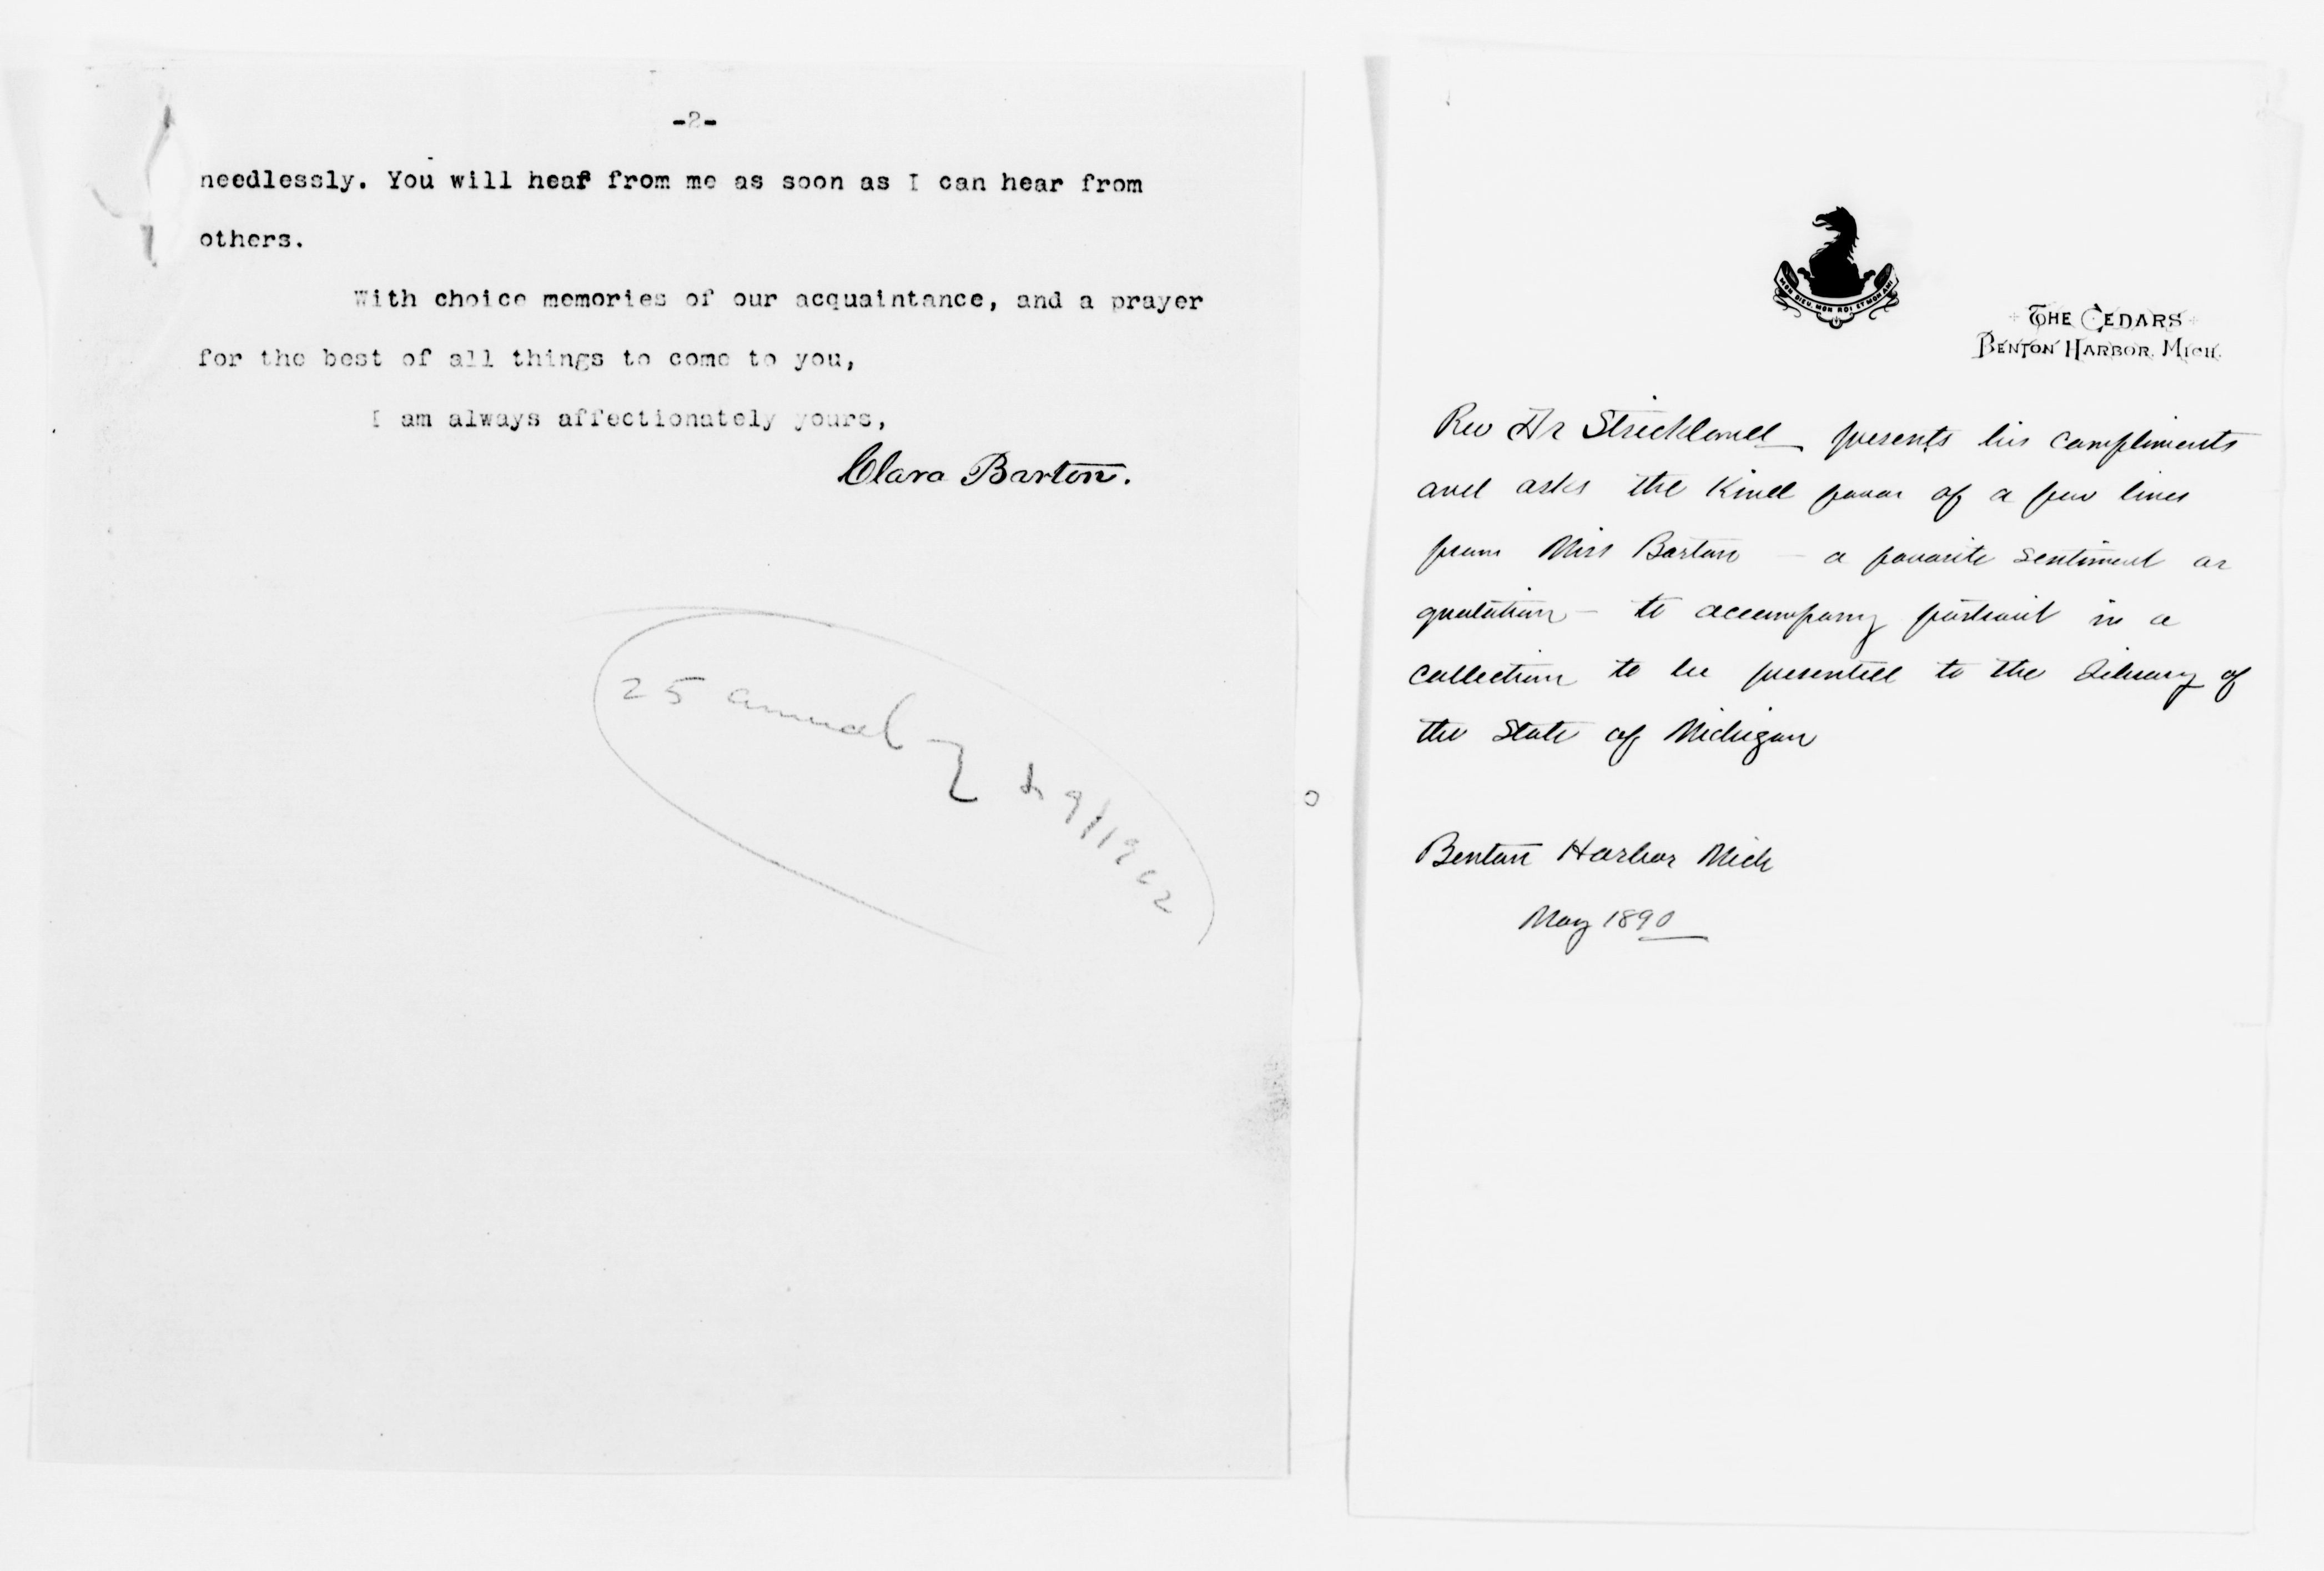 -2-
needlessly. You will hear from me as soon as I can hear from
others.
With choice memories of our acquaintance, and a prayer
for the best of all things to come to you,
I am always affectionately yours,
Clara Barton.
25 annual
9/1902
MON DIEU, MON ROI ET MON AMI
THE CEDARS
BENTON HARBOR, MICH.
Rev Dr Strickland presents his compliments
and asks the Kind favor of a few lines
from Miss Barton – a favorite sentiment or
quotation – to accompany portrait in a
collection to be presented to the Library of
the State of Michigan
Benton Harbor Mich
May 1890